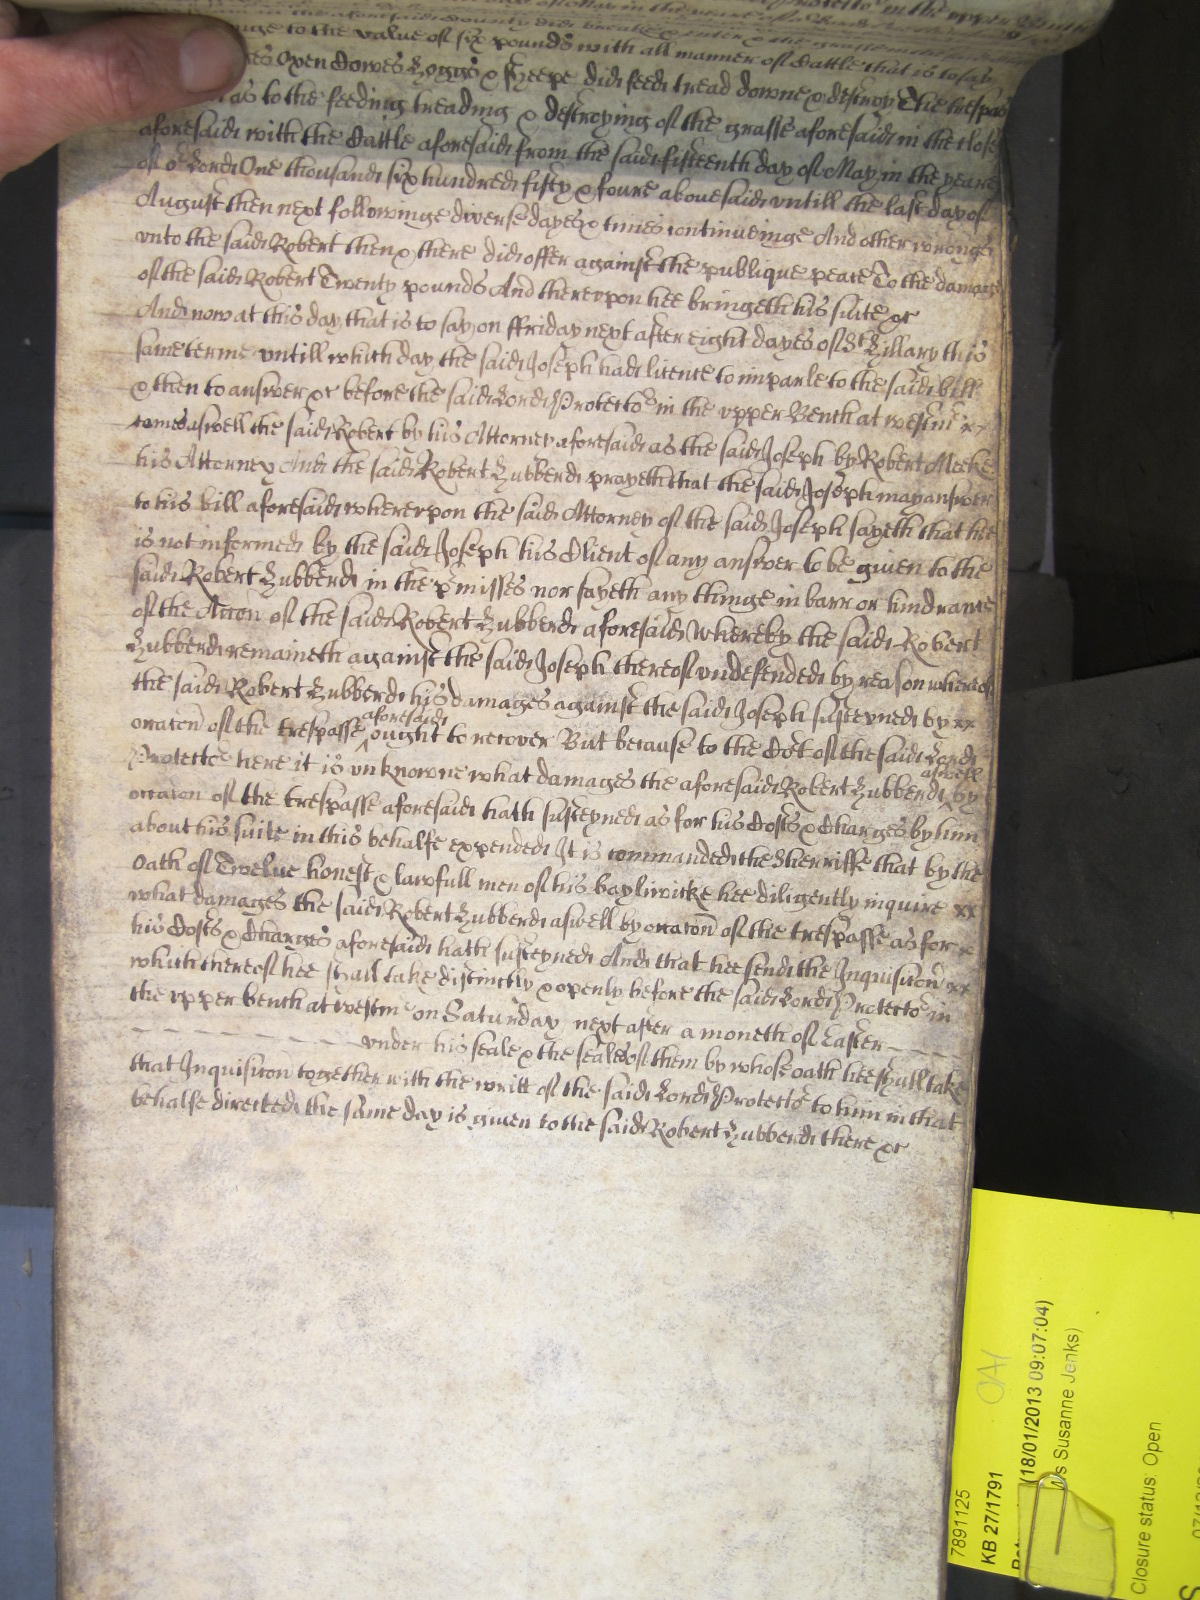 in the upper Bench
in the aforesaid County did breake & enter & the grasse
to the value of six pounds with all manner of Cattle that is to say
Oxen Cowes Hoggs & Sheepe did feed tread downe & destroy The trespas
as to the feeding treading & destroying of the grasse aforesaid in the close
aforesaid with the Cattle aforesaid from the said fifteenth day of May in the yeare
of or Lord One thousand six hundred fifty & foure abovesaid untill the last day of
August then next followinge diverse dayes & times continueinge And other wronges
unto the said Robert then & there did offer against the publique peace To the damage
of the said Robert Twenty pounds And thereupon hee bringeth his suite &c
And now at this day that is to say on ffriday next after eight dayes of St Hillary this
same terme untill which day the said Joseph had licence to imparle to the said bill
& then to answer &c before the said Lord Protector in the upper Bench at Westmr xx
comes aswell the said Robert by his Attorney aforesaid as the said Joseph by Robert Meeke
his Attorney And the said Robert Hubberd prayeth that the said Joseph may answer
to his bill aforesaid whereupon the said Attorney of the said Joseph sayeth that hee
is not informed by the said Joseph his Client of any answer to be given to the
said Robert Hubberd in the pmisses nor sayeth any thinge in barr or hindrance
of the Accon of the said Robert Hubberd aforesaid Whereby the said Robert
Hubberd remaineth against the said Joseph thereof undefended by reason whereof
the said Robert Hubberd his damages against the said Joseph susteyned by xx
occacon of the trespasse aforesaid ought to recover But because to the Cot of the said Lord
Protector here it is unknowne what damages the aforesaid Robert Hubberd aswell by
occacon of the trespasse aforesaid hath susteyned as for his Costs & Charges by him
about his suite in this behalfe expended It is commanded the Sherriffe that by the
oath of Twelve honest & lawfull men of his bayliwicke hee diligently inquire xx
what damages the said Robert Hubberd aswell by occacon of the trespasse as for x
his Costs & Charges aforesaid hath susteyned And that hee send the Inquisicon xx
which thereof hee shall take distinctly & openly before the said Lord Protector in
the upper bench at Westmr on Saturday next after a moneth of Easter
under his seale & the seales of them by whose oath hee shall take
that Inquisicon together with the writt of the said Lord Protector to him in that
behalfe directed the same day is given to the said Robert Hubberd there &c
7891125
KB 27/1791
(18/01/2013 09:07:04)
s Susanne Jenks)
Closure status: Open